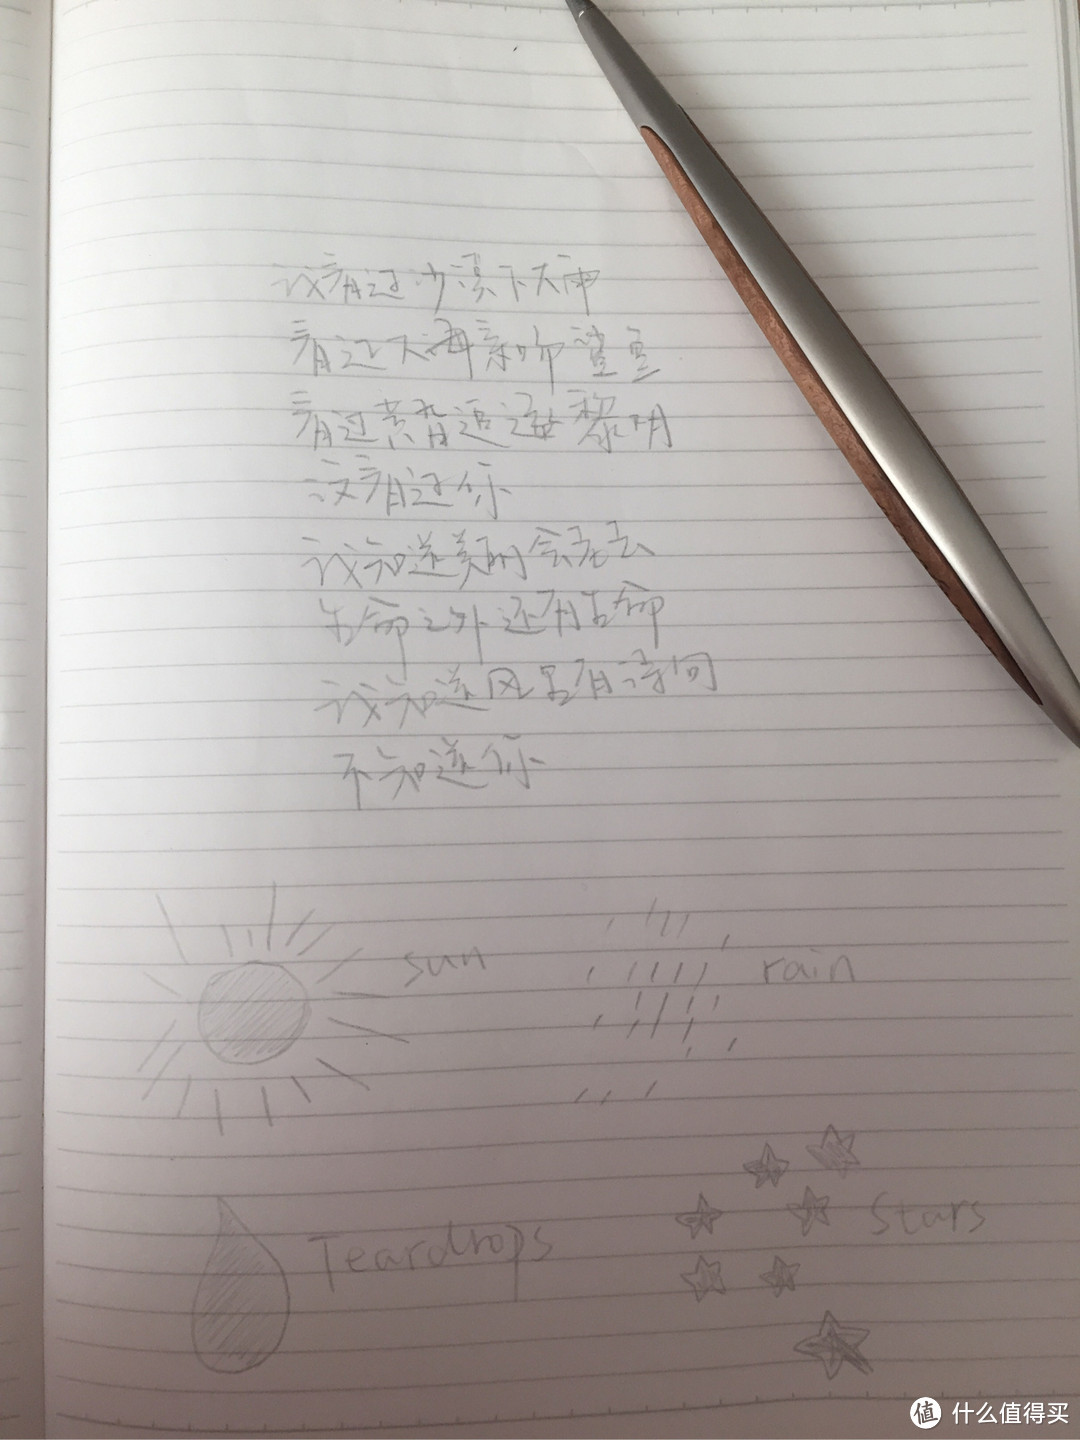 我看过沙漠下大雨
看过大海亲吻鲨鱼
看过黄昏追逐黎明
没看过你
我知道美丽会老去
生命之外还有生命
我知道风里有诗句
不知道你
sun
rain
Teardrops
Stars
值 什么值得买